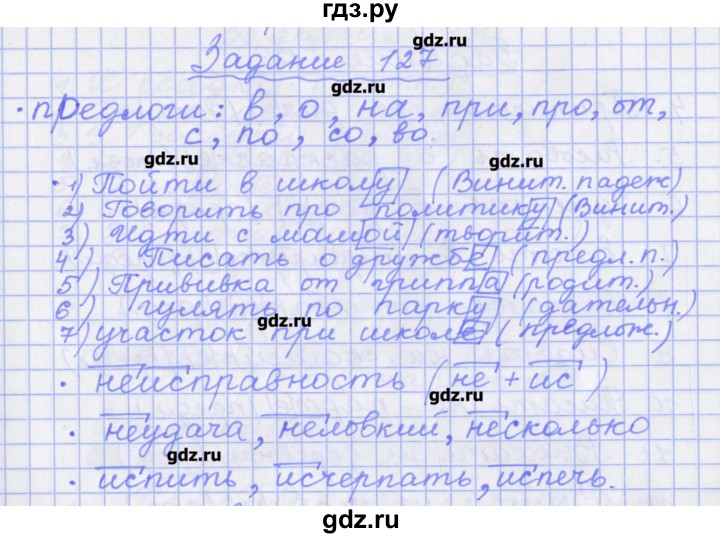 гдз.ру
gdz.ru
Задание 127
gdz.ru
· предлоги: в, о, на, при, про, от,
с, по, со, во.
gdz.ru
gdz.ru
· 1) Пойти в школу (Винит. падеж)
2) Говорить про политику (Винит.)
3) Идти с мамой (творит.)
4) Писать о дружбе (предл. п.)
5) Прививка от гриппа (родит.)
6) гулять по парку (дательн.)
gdz.ru
7) участок при школе (предлож.)
· неисправность (не + ис)
gdz.ru
· неудача, неловкий, несколько
gdz.ru
· испить, исчерпать, испечь.
gdz.ru